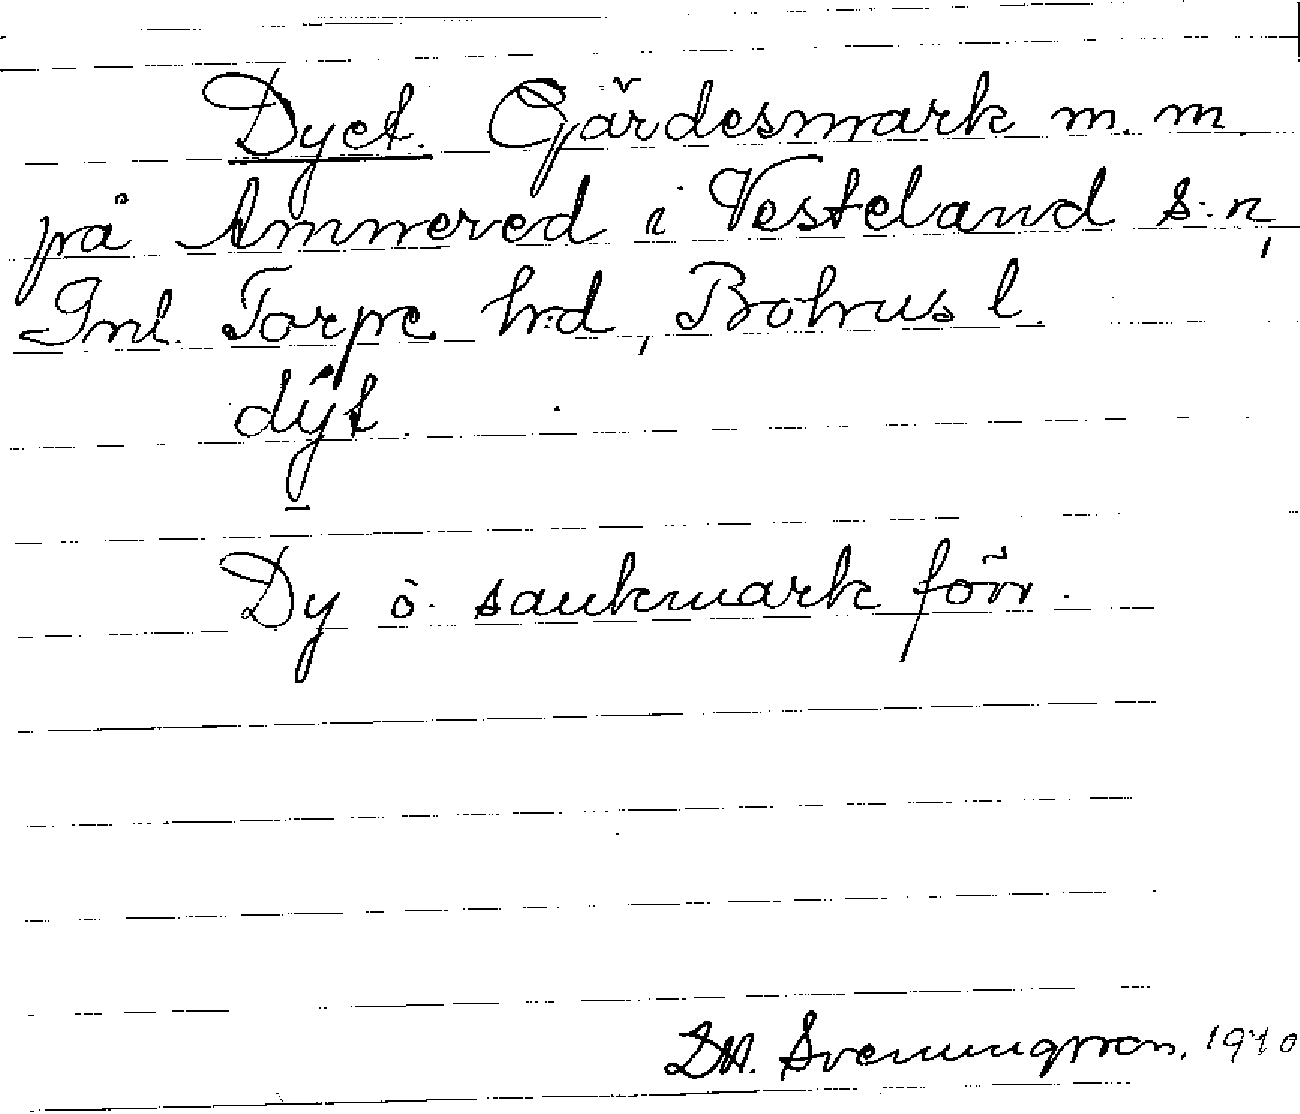 Dyet. Gärdesmark m. m.
på Ammered i Vesteland s:n,
Inl. Torpe h:d, Bohus l.
dýt
Dy ö. sankmark förr.
D. A. Svenningsson, 1910